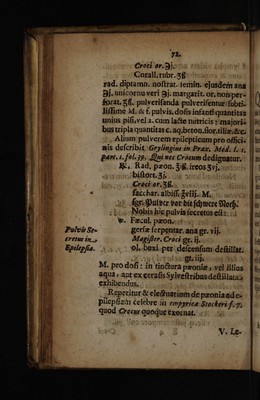 72
Croci or. ℈j.
Corall. rubr. ʒß
rad. diptamn. nostrat. semin. ejusdem ana
℈j. unicornu veri ℈j. margarit. or. non per-
forat. ʒß. pulverisanda pulverisentur subti-
lissime M. & f. pulvis. dosis infanti quantitas
unius pisi, vel 2. cum lacte nutricis: majori-
bus tripla quantitas c. aq. beton. flor. tiliæ. &c.
Alium pulverem epilepticum pro offici-
nis describit Grylingius in Prax. Med. l. 1.
part. 1. fol. 39. Qui nec Crocum dedignatur.
℞. Rad. pæon. ʒß. ireos ʒvj.
bistort. ʒj.
Croci or. ʒß.
sacchar. albiss. ʒviij. M.
sgr. Pulver vor die schwere Noth.
Pulvis Se-
cretus in
Epilepsia.
Nobis hic pulvis secretus est:
℞. Fæcul. pæon.
geriæ serpentar. ana gr. vij.
Magister. Croci gr. ij.
ol. buxi per descensum destillat.
gt. iij.
M. pro dosi: in tinctura pæoniæ, vel illius
aqua, aut ex cerasis Sylvestribus destillata
exhibendus.
Repetitur & electuarium de pæonia ad e-
pilepsiam celebre in empyrica Stockeri f. 7.
quod Crocus quoque exornat.
V. Le-